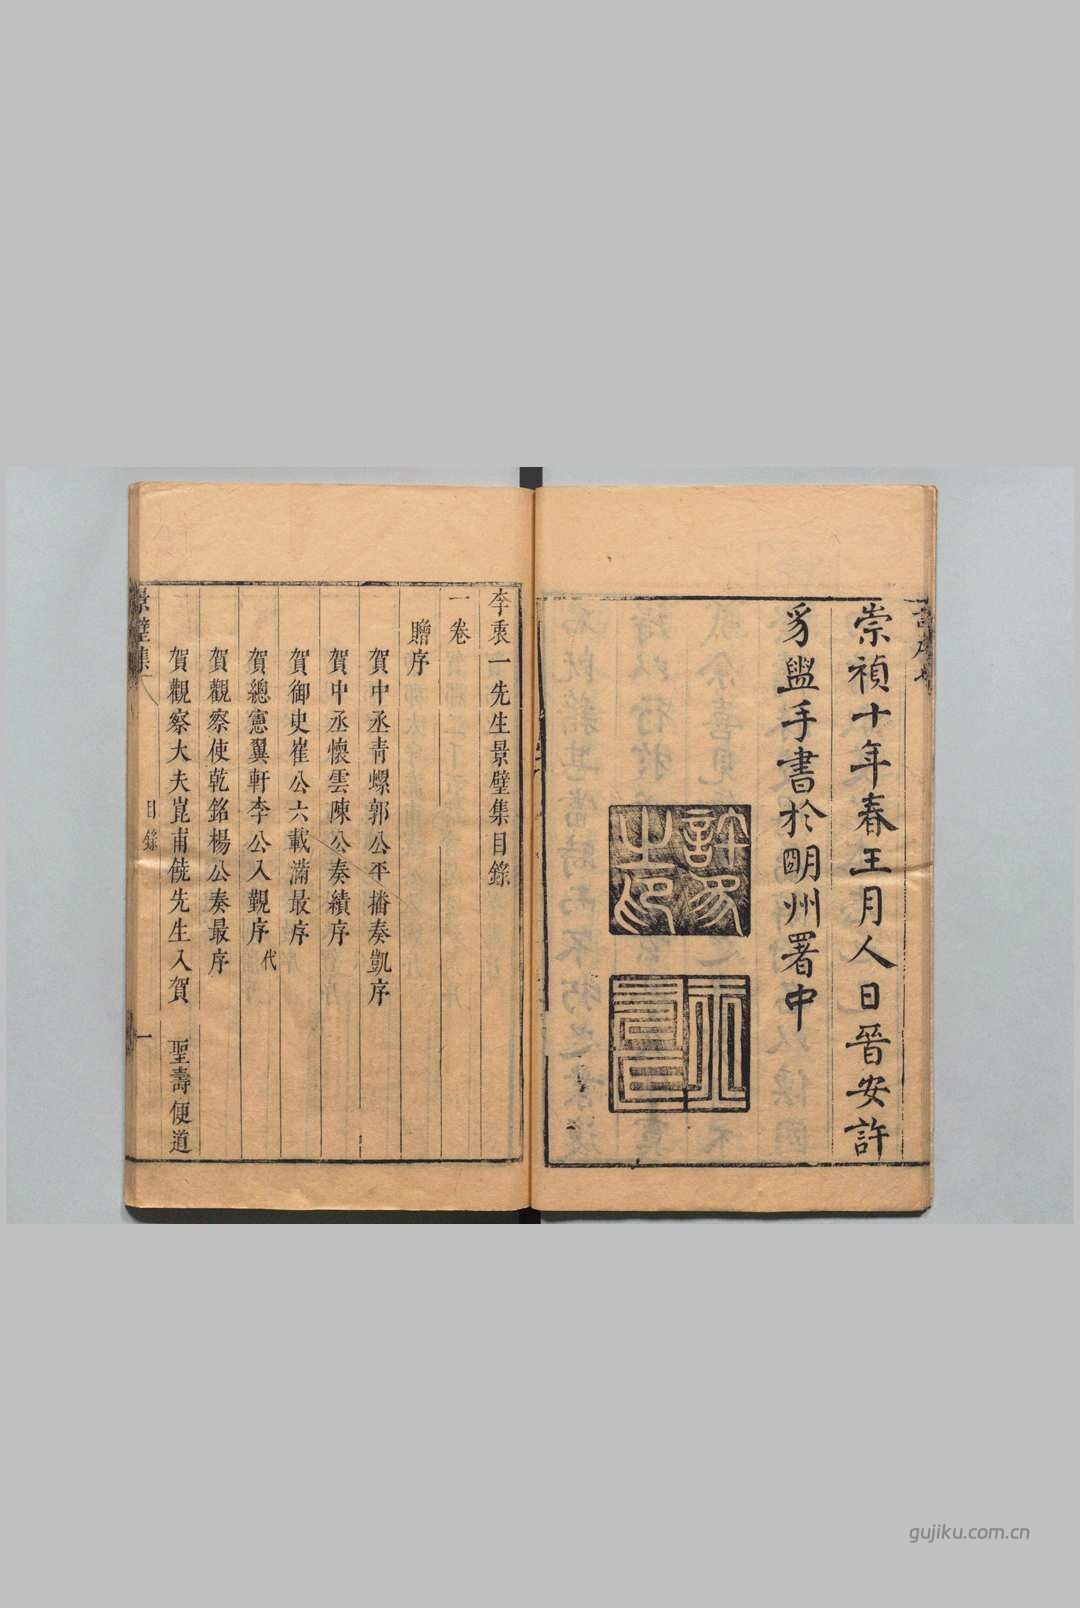 崇禎十年春王月人日晉安許
豸盥手書於明州署中
許豸
之印
李衷一先生景璧集目錄
一卷
贈序
賀中丞青螺郭公平播奏凱序
賀中丞懷雲陳公奏績序
賀御史崔公六載滿最序
賀總憲翼軒李公入覲序代
賀觀察使乾銘楊公奏最序
賀觀察大夫崑甫饒先生入賀 聖壽便道
景璧集
目錄
一
gujiku.com.cn